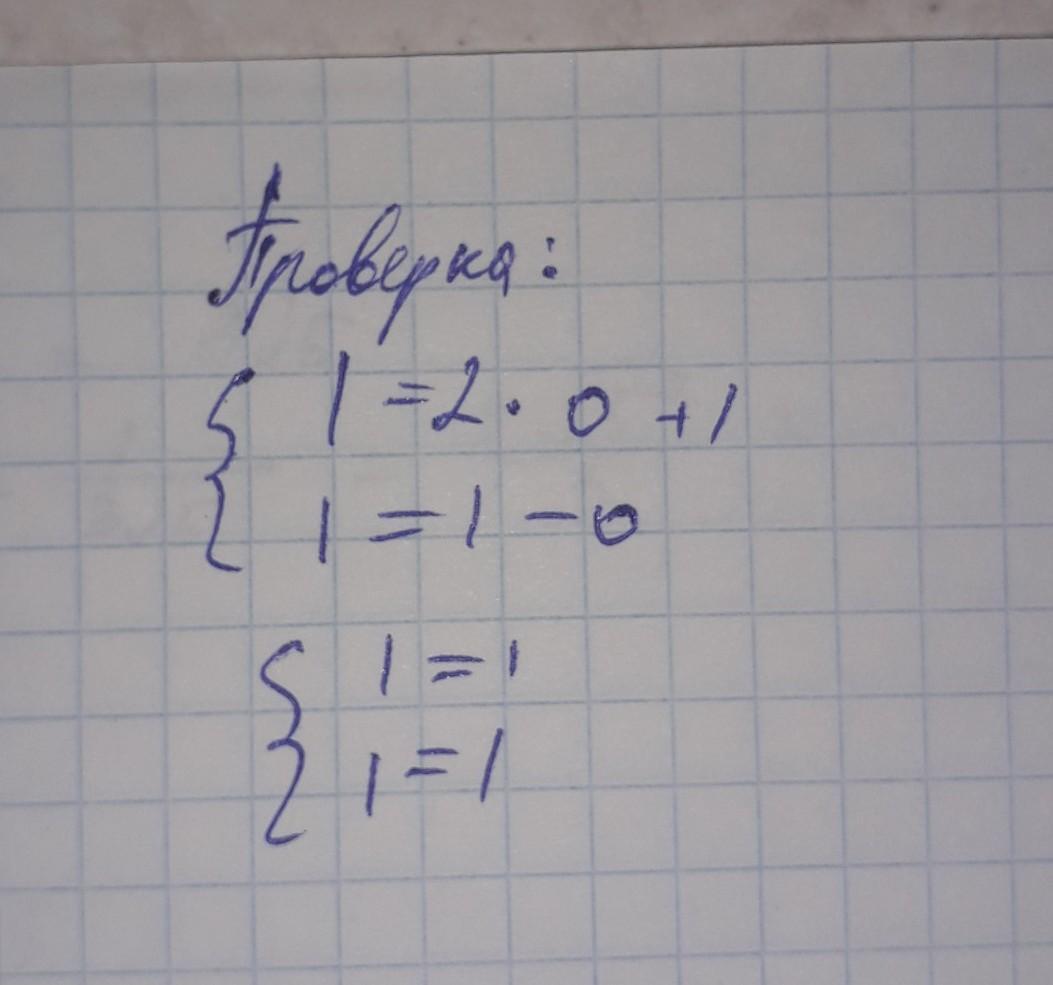 Проверка:
1 = 2 · 0 + 1
1 = 1 - 0
1 = 1
1 = 1